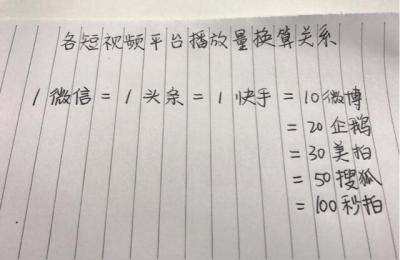 各短视频平台播放量换算关系
1微信=1头条=1快手=10微博
=20企鹅
=30美拍
=50搜狐
=100秒拍